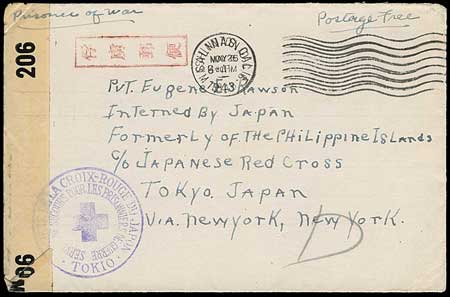 Prisoner of War
Postage Free
206
俘虜郵便
MAY 26
1943
Pvt. Eugene Rawson
Interned By Japan
Formerly of The Philippine Islands
c/o Japanese Red Cross
Tokyo, Japan
Via. New York, New York.
LA CROIX-ROUGE DU JAPON
SECOURS POUR LES PRISONNIERS DE GUERRE
TOKIO
66